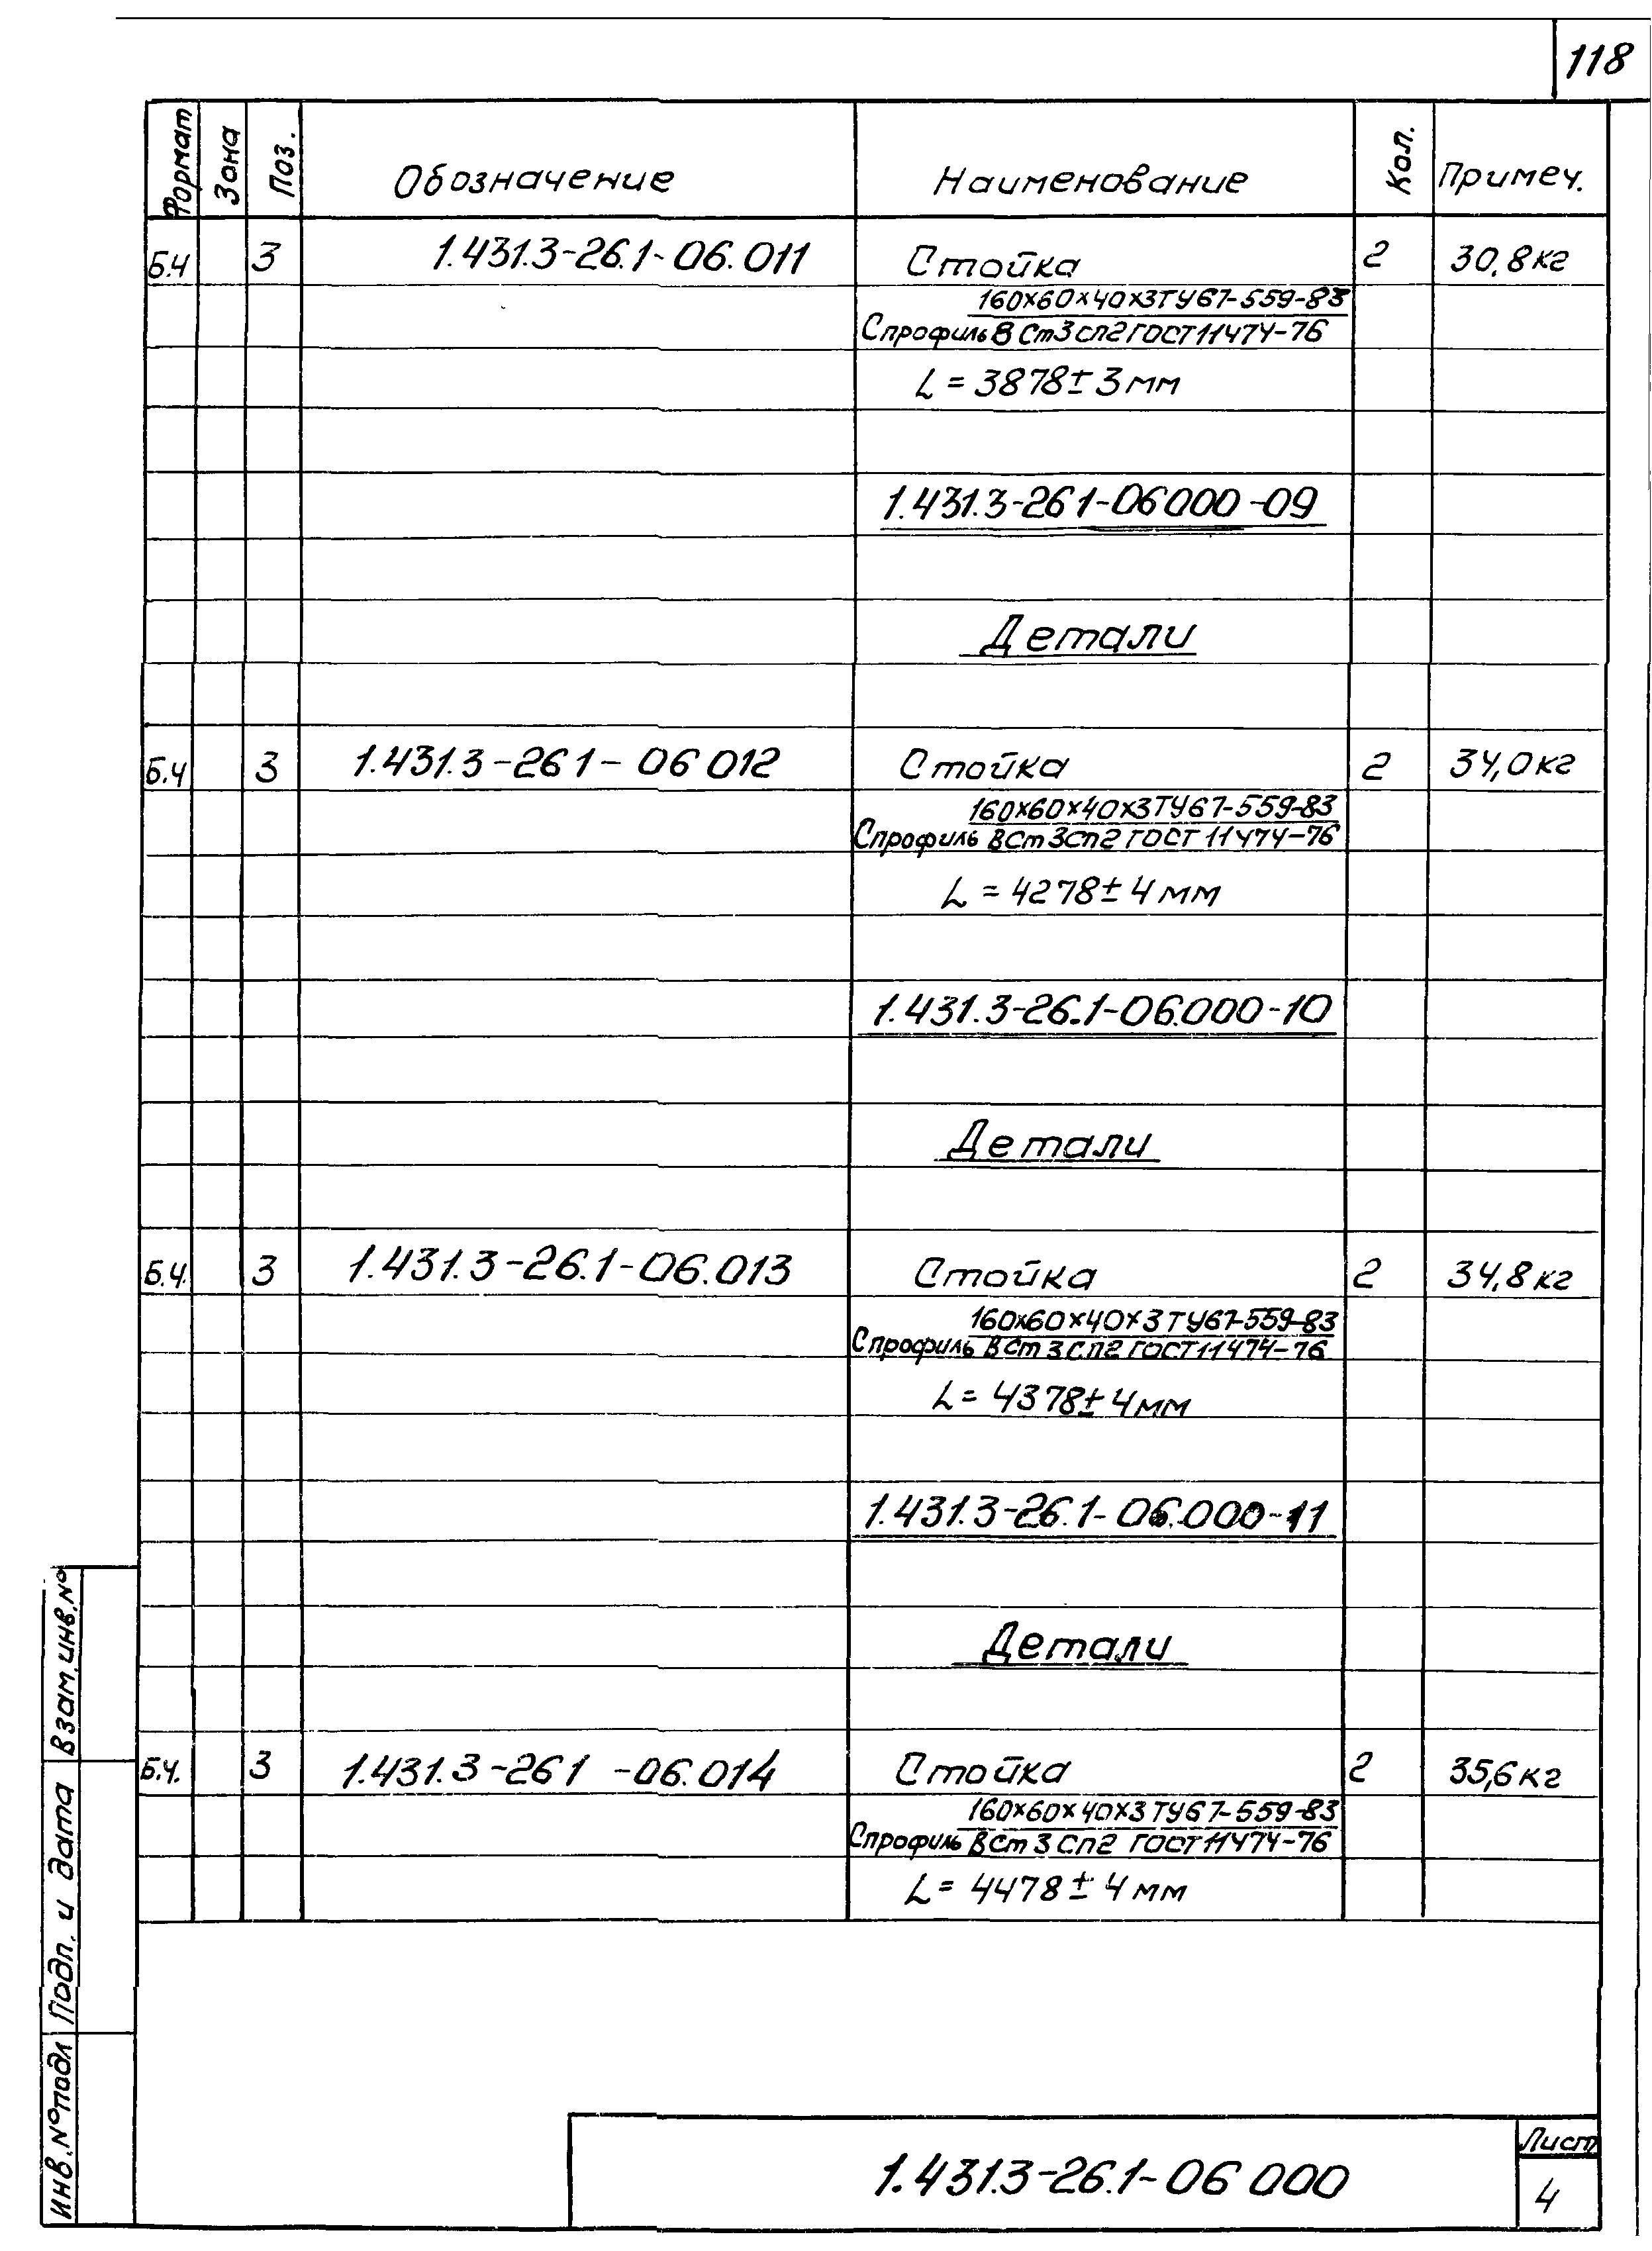 118
Формат Зона Поз. Обозначение Наименование Кол. Примеч.
Б.Ч 3 1.431.3-26.1-06.011 Стойка 2 30,8кг
160х60х40х3ТУ67-559-83
С профиль В Ст3сп2ГОСТ11474-76
L = 3878± 3мм
1.431.3-261-06000-09
Детали
Б.Ч 3 1.431.3-261-06 012 Стойка 2 34,0кг
160х60х40х3ТУ67-559-83
С профиль ВСт3сп2 ГОСТ 11474-76
L = 4278± 4мм
1.431.3-26.1-06.000-10
Детали
Б.Ч. 3 1.431.3-26.1-06.013 Стойка 2 34,8кг
160х60х40х3ТУ67-559-83
С профиль ВСт3сп2 ГОСТ11474-76
L = 4378± 4мм
1.431.3-26.1-06.000-11
Детали
Б.Ч. 3 1.431.3-261 -06.014 Стойка 2 35,6кг
160х60х40х3 ТУ67-559-83
С профиль ВСт 3 Сп2 ГОСТ11474-76
L = 4478 ± 4мм
Взам.инв.№
Подп. и дата
Инв.№подл
1.431.3-26.1-06 000
Лист
4